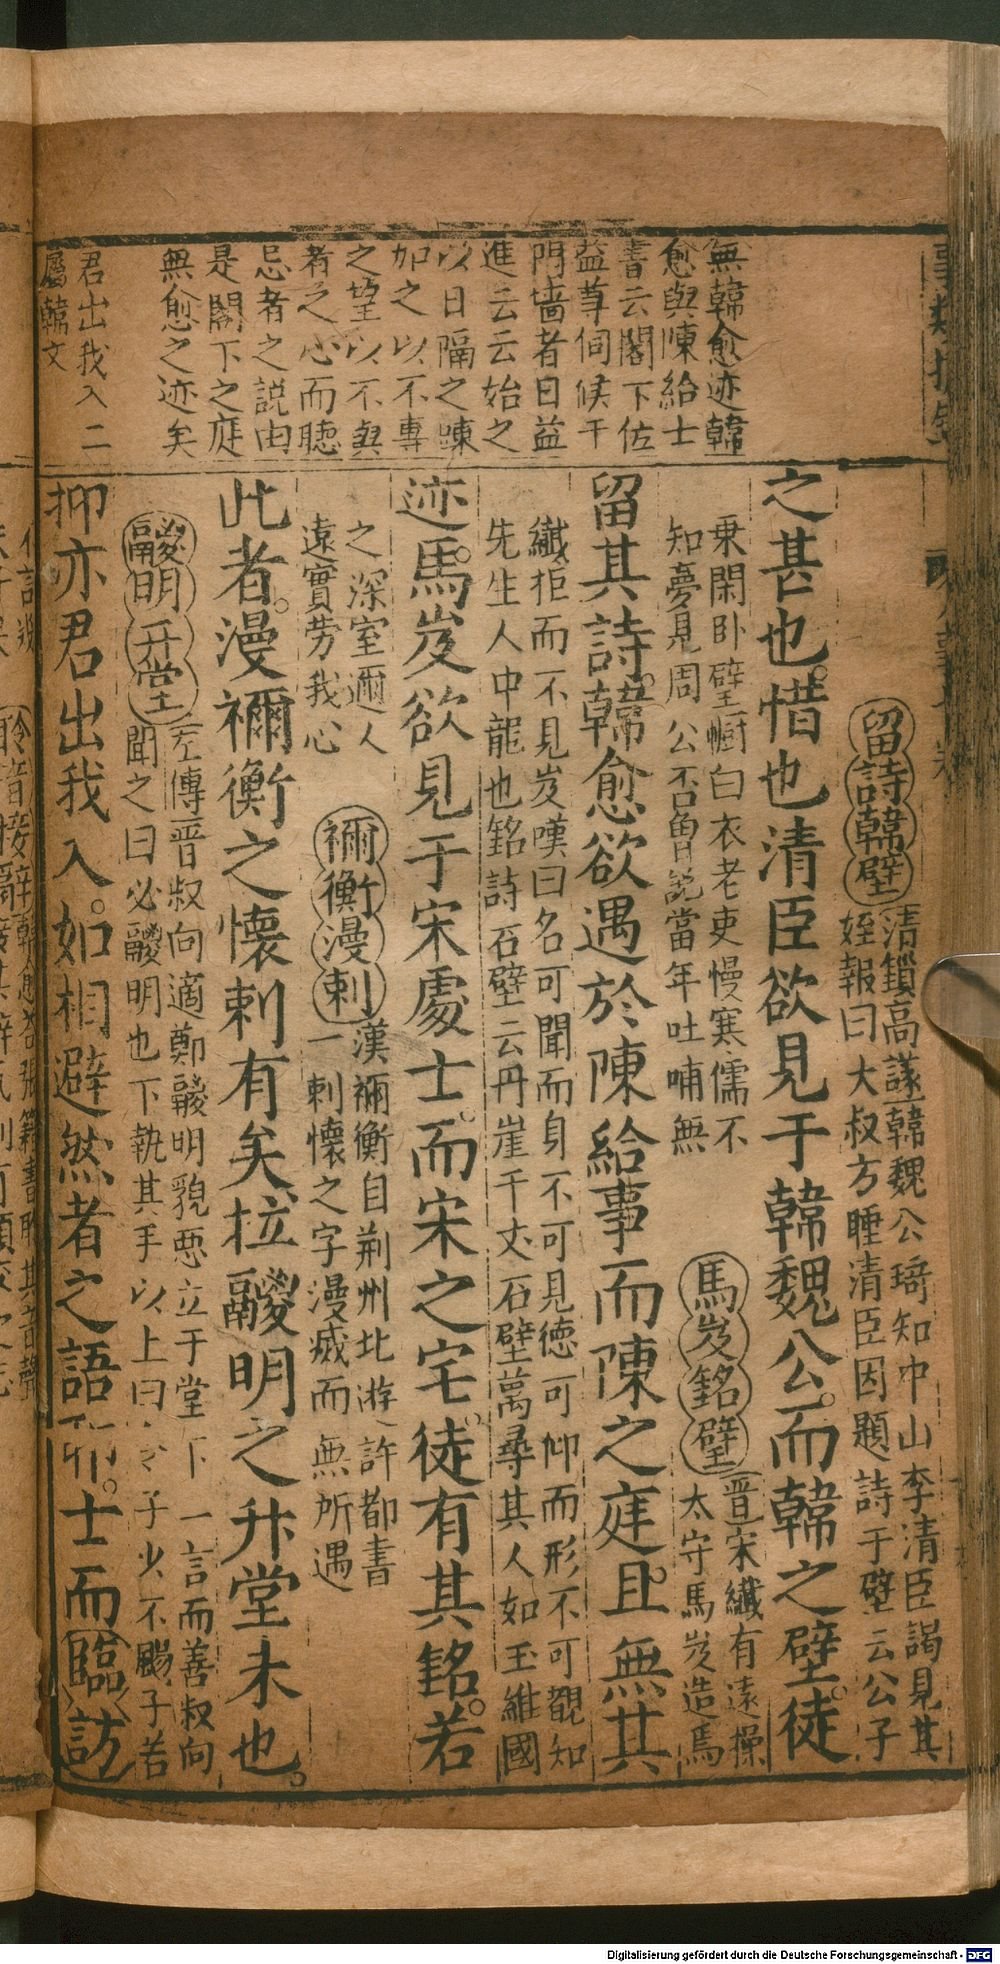 無韓愈迹韓
愈與陳給士
書云閣下佐
益尊伺候于
門墻者日益
進云云始之
以日隔之㬀
加之以不專
之望以不與
者之心而聽
忌者之説由
是閣下之庭
無愈之迹矣
君出我入二
屬韓文
留詩韓壁
清鎖高議韓魏公琦知中山李清臣謁見其
姪報曰大叔方睡清臣因題詩于壁云公子
乗閑卧壁㡡白衣老吏慢寒儒不
知夢見周公否曾説當年吐哺無
之甚也惜也清臣欲見于韓魏公而韓之壁徒
馬岌銘壁
晋宋纖有遠操
太守馬岌造焉
留其詩韓愈欲遇於陳給事而陳之庭且無其
纖拒而不見岌嘆曰名可聞而身不可見徳可仰而形不可覩知
先生人中龍也銘詩石壁云丹崖千丈石壁萬尋其人如玉維國
之深室邇人
遠實劳我心
迹馬岌欲見于宋處士而宋之宅徒有其銘若
禰衡漫刺
漢禰衡自荆州北遊許都書
一刺懷之字漫㓕而無所遇
此者漫禰衡之懷刺有矣拉鬷明之升堂未也
鬷明升堂
左傳晋叔向適鄭鬷明貌惡立于堂下一言而善叔向
聞之曰必鬷明也下執其手以上曰子少不颺子若
抑亦君出我入如相避然者之語耶士而臨訪
Digitalisierung gefördert durch die Deutsche Forschungsgemeinschaft - DFG